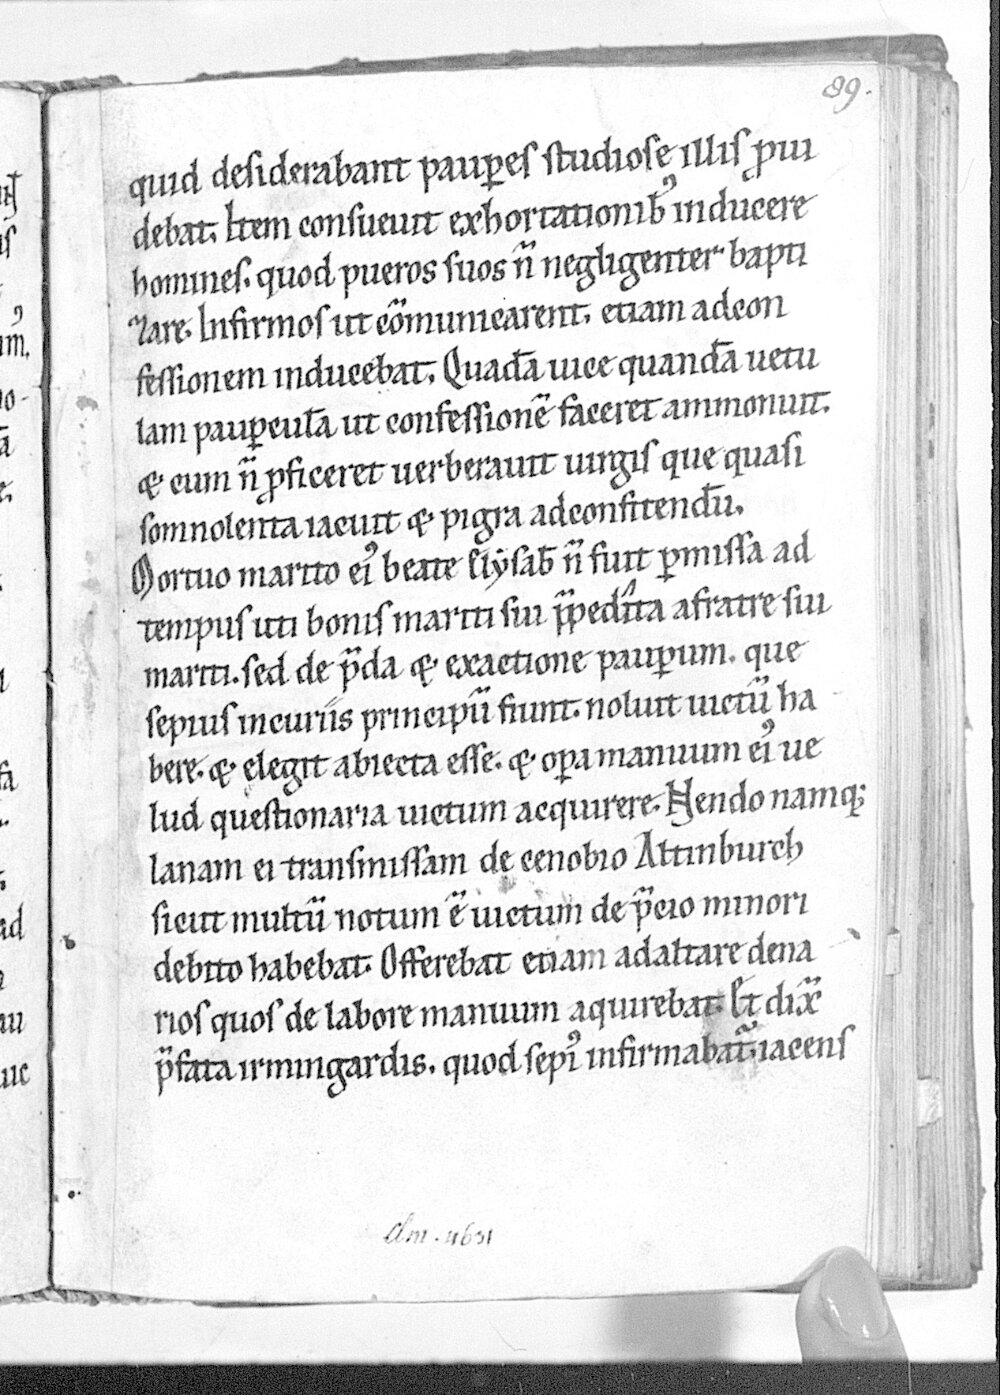 89.
quid desiderabant paup̱es studiose illis ꝓui
debat. Item consueuit exhortationib᷒ inducere
homines. quod pueros suos n̄ negligenter bapti
zare. Infirmos ut com̄unicarent. etiam adcon
fessionem inducebat. Quadā uice quandā uetu
lam paup̱culā ut confessionē faceret ammonuit.
& cum n̄ ꝓficeret uerberauit uirgis que quasi
somnolenta iacuit & pigra adconfitendū.
Mortuo marito ei᷒ beate Elẏsab̄ n̄ fuit p̱missa ad
tempus uti bonis mariti sui p̄pedita afratre sui
mariti. sed de p̄da & exactione paup̱um. que
sepius incuriis principū fiunt. noluit uictū ha
bere. & elegit abiecta esse. & op̱a manuum ei᷒ ue
lud questionaria uictum acquirere. Nendo namq;
lanam ei transmissam de cenobio Altinburch
sicut multū notum ē uictum de p̄cio minori
debito habebat. Offerebat etiam adaltare dena
rios quos de labore manuum aquirebat. Et dix̄
p̄fata irmingardis. quod sepi᷒ infirmabat̄. iacens
Clm. 4631